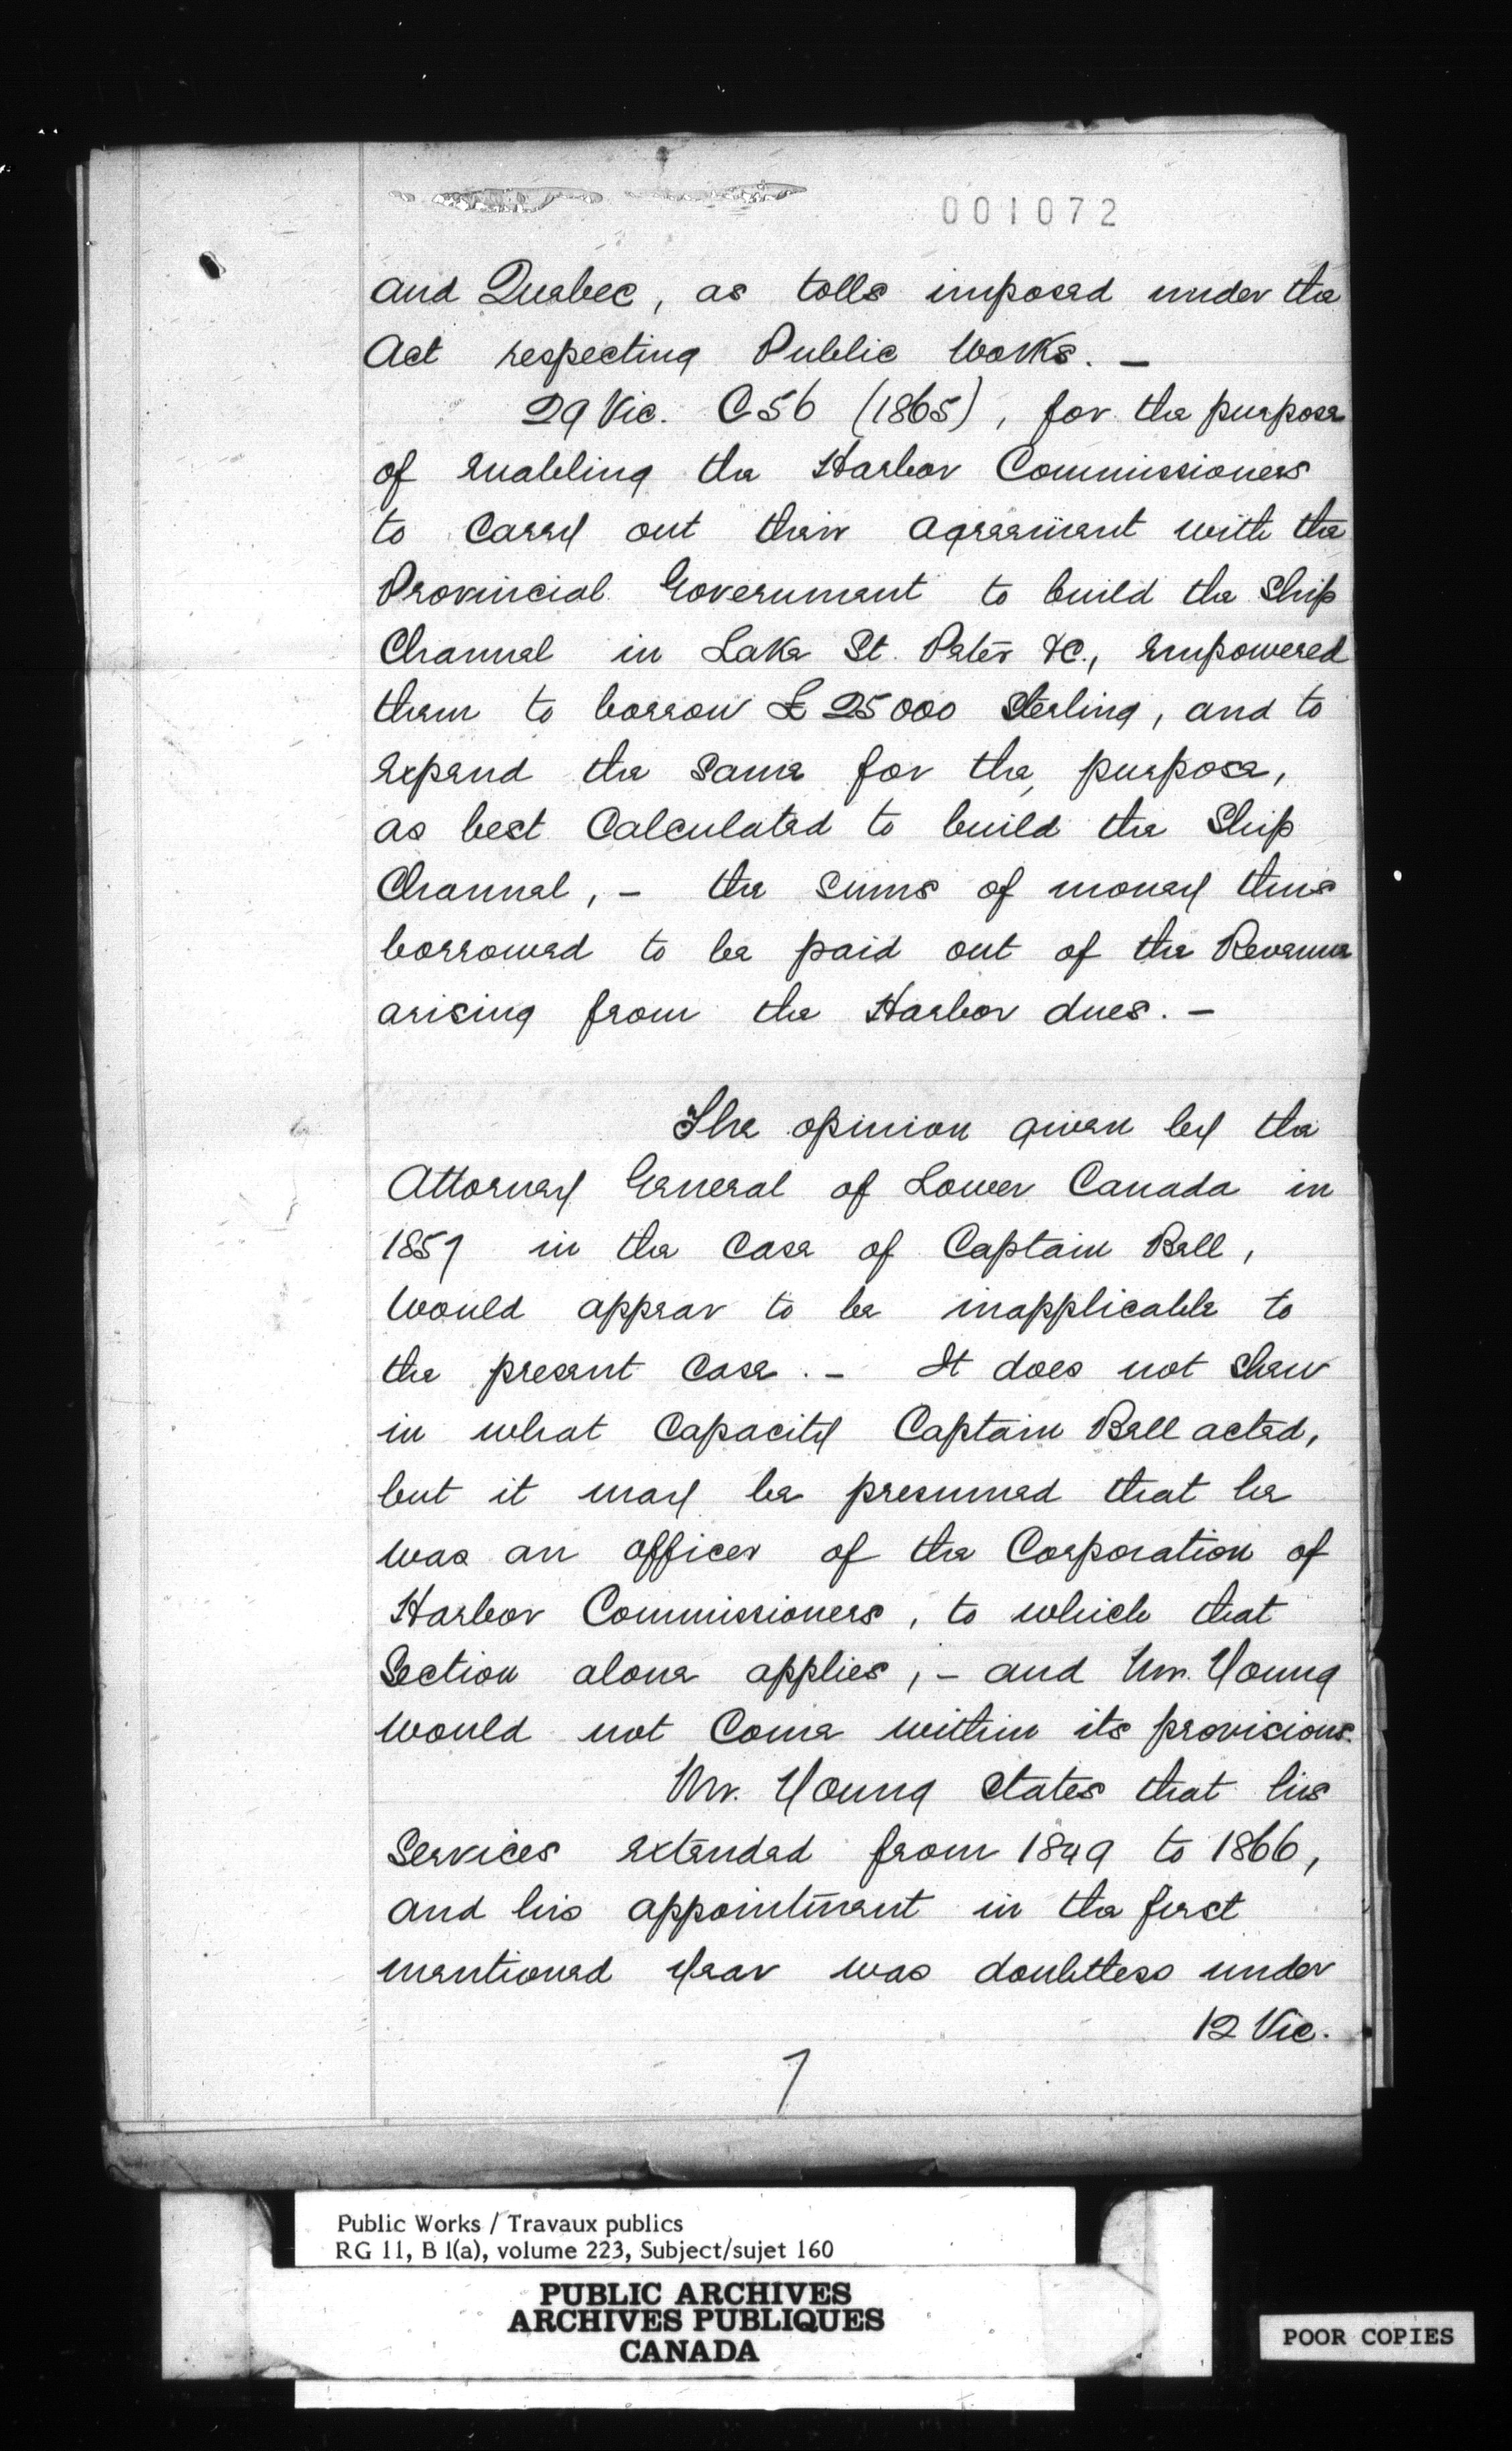 001072
and Quebec, as tolls imposed under the
Act respecting Public Works. —
29 Vic. C 56 (1865), for the purpose
of enabling the Harbor Commissioners
to carry out their agreement with the
Provincial Government to build the Ship
Channel in Lake St. Peter &c., empowered
them to borrow £25000 Sterling, and to
expend the same for the purpose,
as best Calculated to build the Ship
Channel, – the sums of money thus
borrowed to be paid out of the Revenue
arising from the Harbor dues. –
The opinion given by the
Attorney General of Lower Canada in
1857 in the Case of Captain Bell,
would appear to be inapplicable to
the present Case. – It does not shew
in what Capacity Captain Bell acted,
but it may be presumed that he
was an officer of the Corporation of
Harbor Commissioners, to which that
Section alone applies, – and Mr. Young
would not Come within its provisions.
Mr. Young states that his
Services extended from 1849 to 1866,
and his appointment in the first
mentioned year was doubtless under
12 Vic.
7
Public Works / Travaux publics
RG 11, B 1(a), volume 223, Subject/sujet 160
PUBLIC ARCHIVES
ARCHIVES PUBLIQUES
CANADA
POOR COPIES